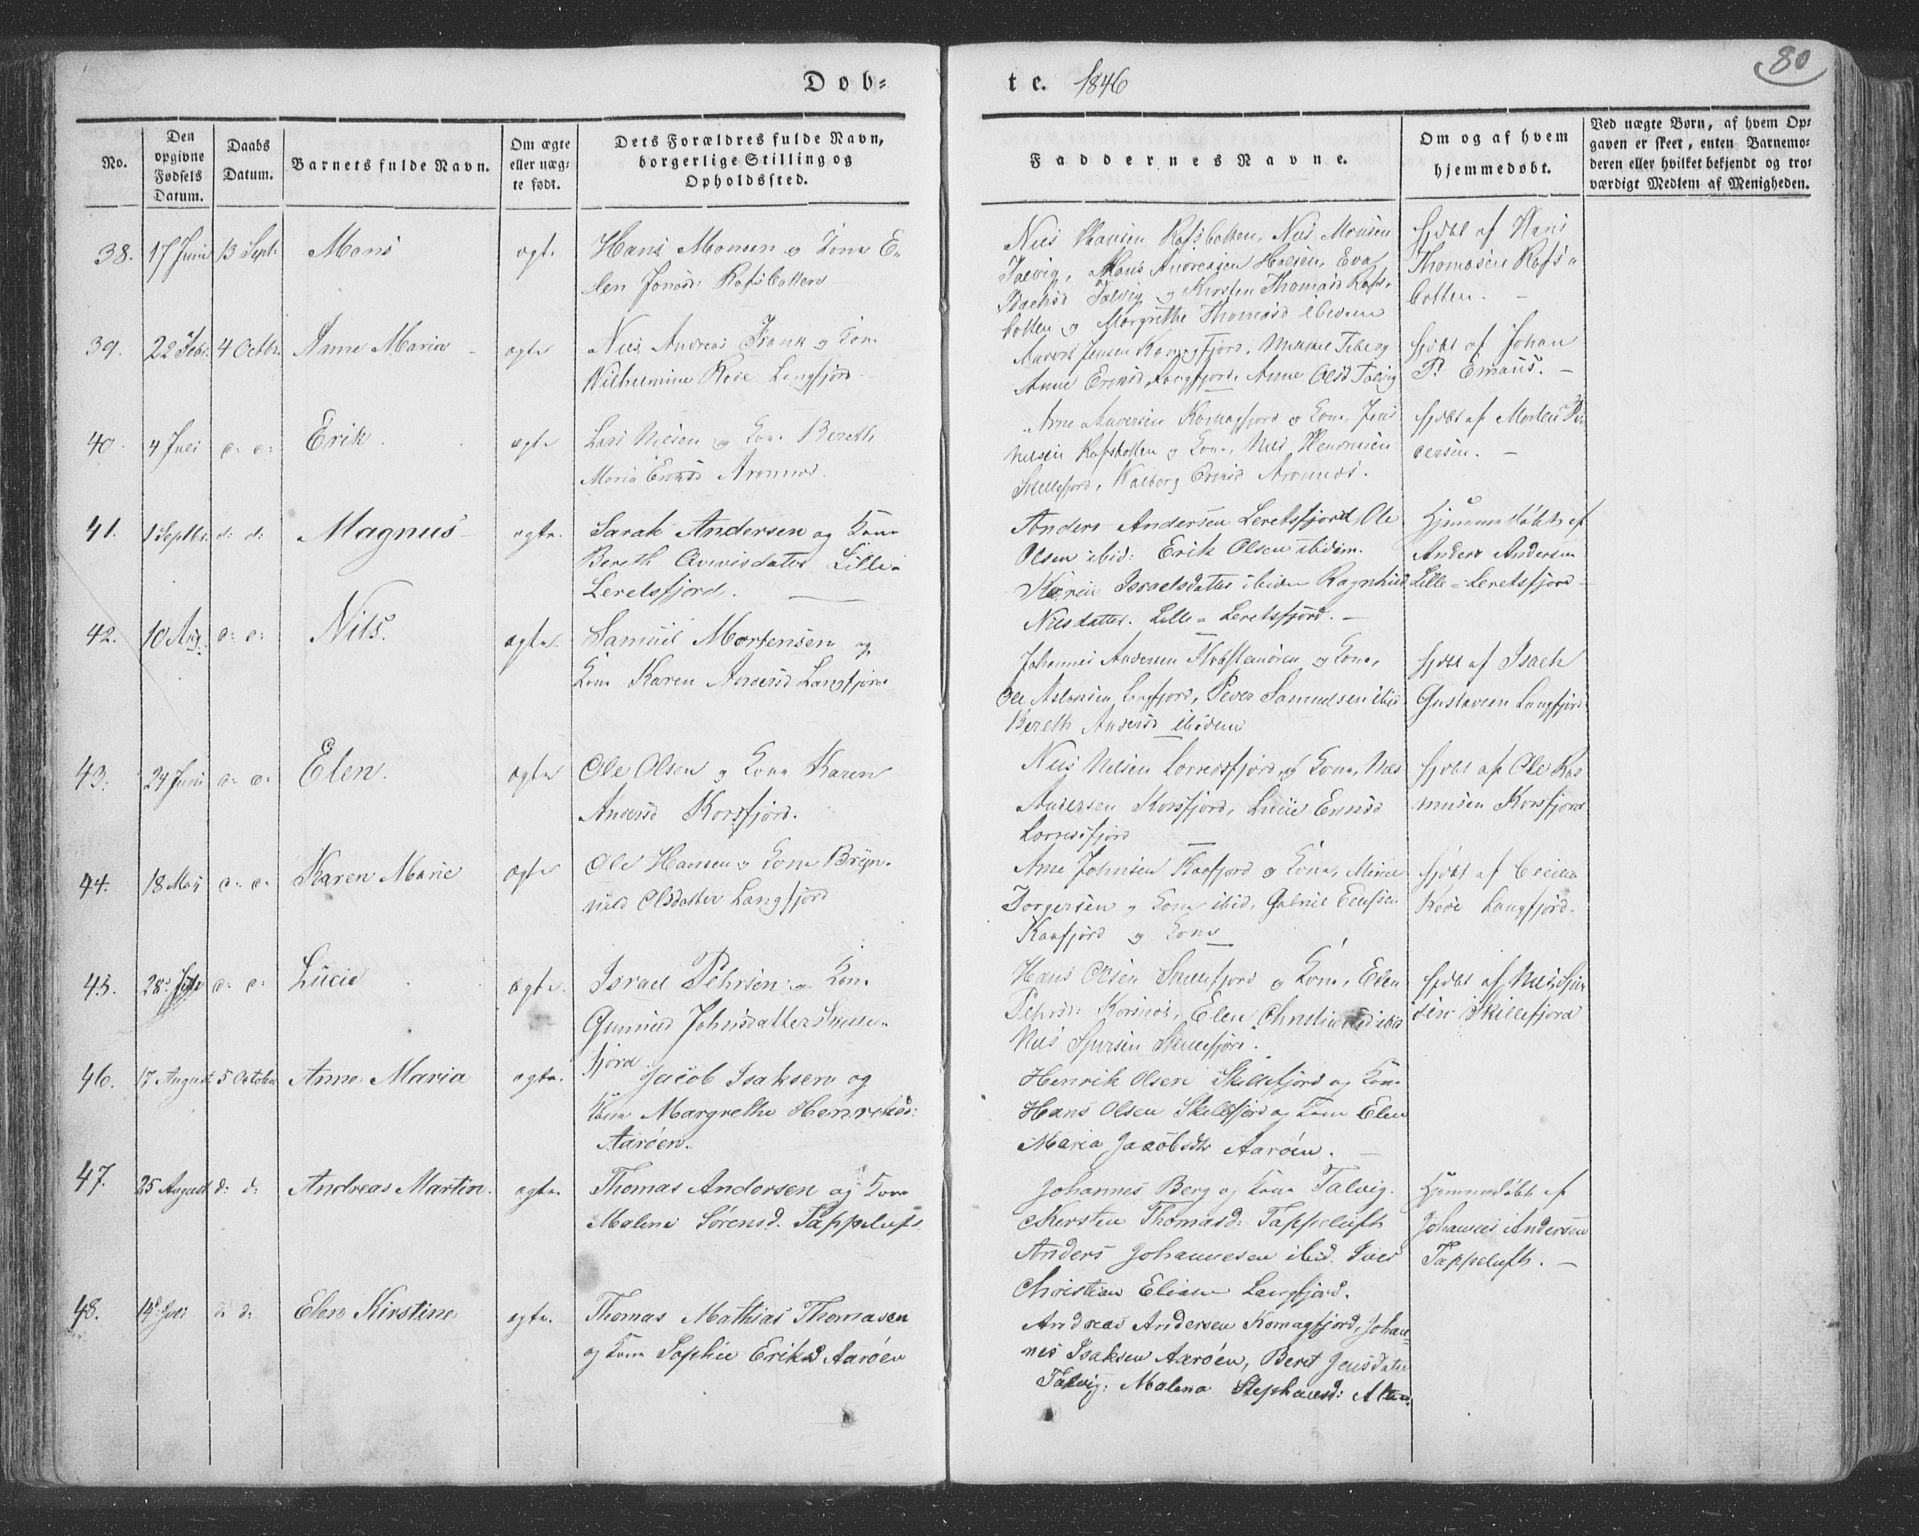 80
Døb-
te. 1846
No.
Den opgivne Fødsels Datum.
Daabs Datum.
Barnets fulde Navn.
Om ægte eller uæg-te født.
Dets Forældres fulde Navn, borgerlige Stilling og Opholdssted.
Faddernes Navne.
Om og af hvem hjemmedøbt.
Ved uægte Børn, af hvem Op-
gaven er skeet, enten Barnemo-
deren eller hvilket bekjendt og tro-
værdigt Medlem af Menigheden.
38. 17 Juni 13 Sept. Mons ægt. Hans Monsen og Kone E-
len Jonsd: Rafsbotten
Nils Hansen Rafsbotten, Nils Monsen
Talvig, Hans Andreasen Halsen, Eva
Isachsd Talvig og Kirsten Thomasd Rafs-
botten og Margrethe Thomasd ibidem
hjdbt af Hans
Thomasen Rafs-
botten. -
39. 22 Febr. 4 Octbr. Anne Maria ægte Nils Andreas Frank og Kone
Wilhelmine Rode Langfjord
Anders Jensen Komagfjord,
Anne Langfjord, Anne Olsd Talvig
hjdbt af Johan
P. Emaus. -
40. 4 Juli d: d: Erik ægte Lars Nilsen og Kone Bereth
Maria Aronnæs.
Arne Andersen Komagfjord og Kone, Jens
Nilsen Rafsbotten og Kone, Nils Hendriksen
Skillefjord, Aronnæs.
hjdbt af Morten Pe-
dersen. -
41. 1 Septbr. d: d: Magnus ægte. Sarak Andersen og Kone
Bereth Lille-
Leretsfjord.
Anders Andersen Leretsfjord, Ole
Olsen ibid: Erik Olsen ibidem.
Karen Israelsdatter ibidem Ragnhild
Nilsdatter. Lille-Leretsfjord. -
Hjemmedøbt af
Anders Andersen
Lille-Leretsfjord
42. 10 Aug. d: d: Nils. ægte. Samuel Mortensen og
Kone Karen Andersd Langfjord
Johannes Andersen og Kone,
Ole Aslaksen Langfjord, Peder Samuelsen ibid
Bereth Andersd ibidem
hjdbt af Isach
Gustavsen Langfjord
43. 24 Juni d: d: Elen. ægte Ole Olsen og Kone Karen
Andersd Korsfjord.
Nils Nilsen og Kone, Nils
Andersen Korsfjord, Lucie
hjdbt af Ole Ras
musen Korsfjord
44. 18 Maj d: d: Karen Marie ægte Ole Hansen og Kone Bryn-
hild Olsdatter Langfjord
Arne Johnsen Kaafjord og Kone,
og Kone ibid, Gabriel
Kaafjord og Kone
hjdbt af Cecilia
Rode Langfjord.
45. 28: d: d: Lucie ægte. Israel Pehrsen og Kone
Gunild Johnsdatter Skille-
fjord
Hans Olsen Skillefjord og Kone, Elen
Pehrsd: Korsnæs, Elen ibid
Nils Skillefjord.
hjdbt af Nils
Skillefjord
46. 17 August 5 October Anne Maria ægte. Jacob Isaksen og
Kone Margrethe Henriksd:
Aarøen.
Henrik Olsen Skillefjord og Kone
Hans Olsen Skillefjord og Kone Elen
Maria Jacobsdt Aarøen. -
47. 25 August d: d: Andreas Martin. ægte. Thomas Andersen og Kone
Malene Sørensd. Tappeluft
Johannes Berg og Kone Talvig.
Kirsten Thomasd: Tappeluft
Anders Johannesen ibid.
Christian Langfjord.
Hjemmedøbt af
Johannes Andersen
Tappeluft. -
48. 14 Juli d: d: Elen Kirstine ægte. Thomas Mathias Thomasen
og Kone Sophie Eriksd Aarøen
Andreas Andersen Komagfjord, Johan-
nes Isaksen Aarøen, Beret Jensdater
Talvig. Malena Stephansd: Alten.